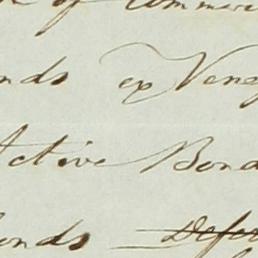 of Commerc
nds ex Vene
Active Bond
onds Defer